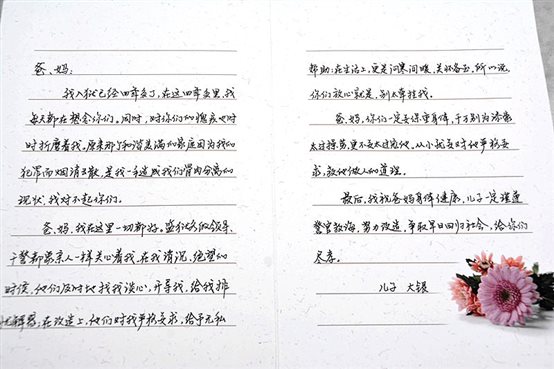 爸、妈:
我入狱已经四年多了,在这四年多里,我
每天都在想念你们。同时,对你们的愧疚也时
时折磨着我,原来那个和谐美满的家庭因为我的
犯罪而烟消云散,是我一手造成我们骨肉分离的
现状,我对不起你们。
爸、妈,我在这里一切都好。监狱各级领导、
干警都像亲人一样关心着我,在我消沉、绝望的
时候,他们及时地找我谈心,开导我,给我排
忧解难;在改造上,他们对我严格要求,给予无私
帮助;在生活上,更是问寒问暖,关怀备至。所以说,
你们放心就是,别太牵挂我。
爸、妈,你们一定要保重身体,千万别为
太过操劳,更不要太过宠他,从小就要对他严格要
求,教他做人的道理。
最后,我祝爸妈身体健康,儿子一定谨遵
警官教诲,努力改造,争取早日回归社会,给你们
尽孝。
儿子 大银